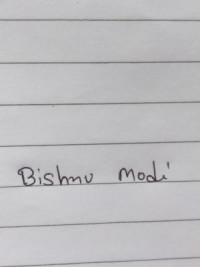 Bishnu Modi